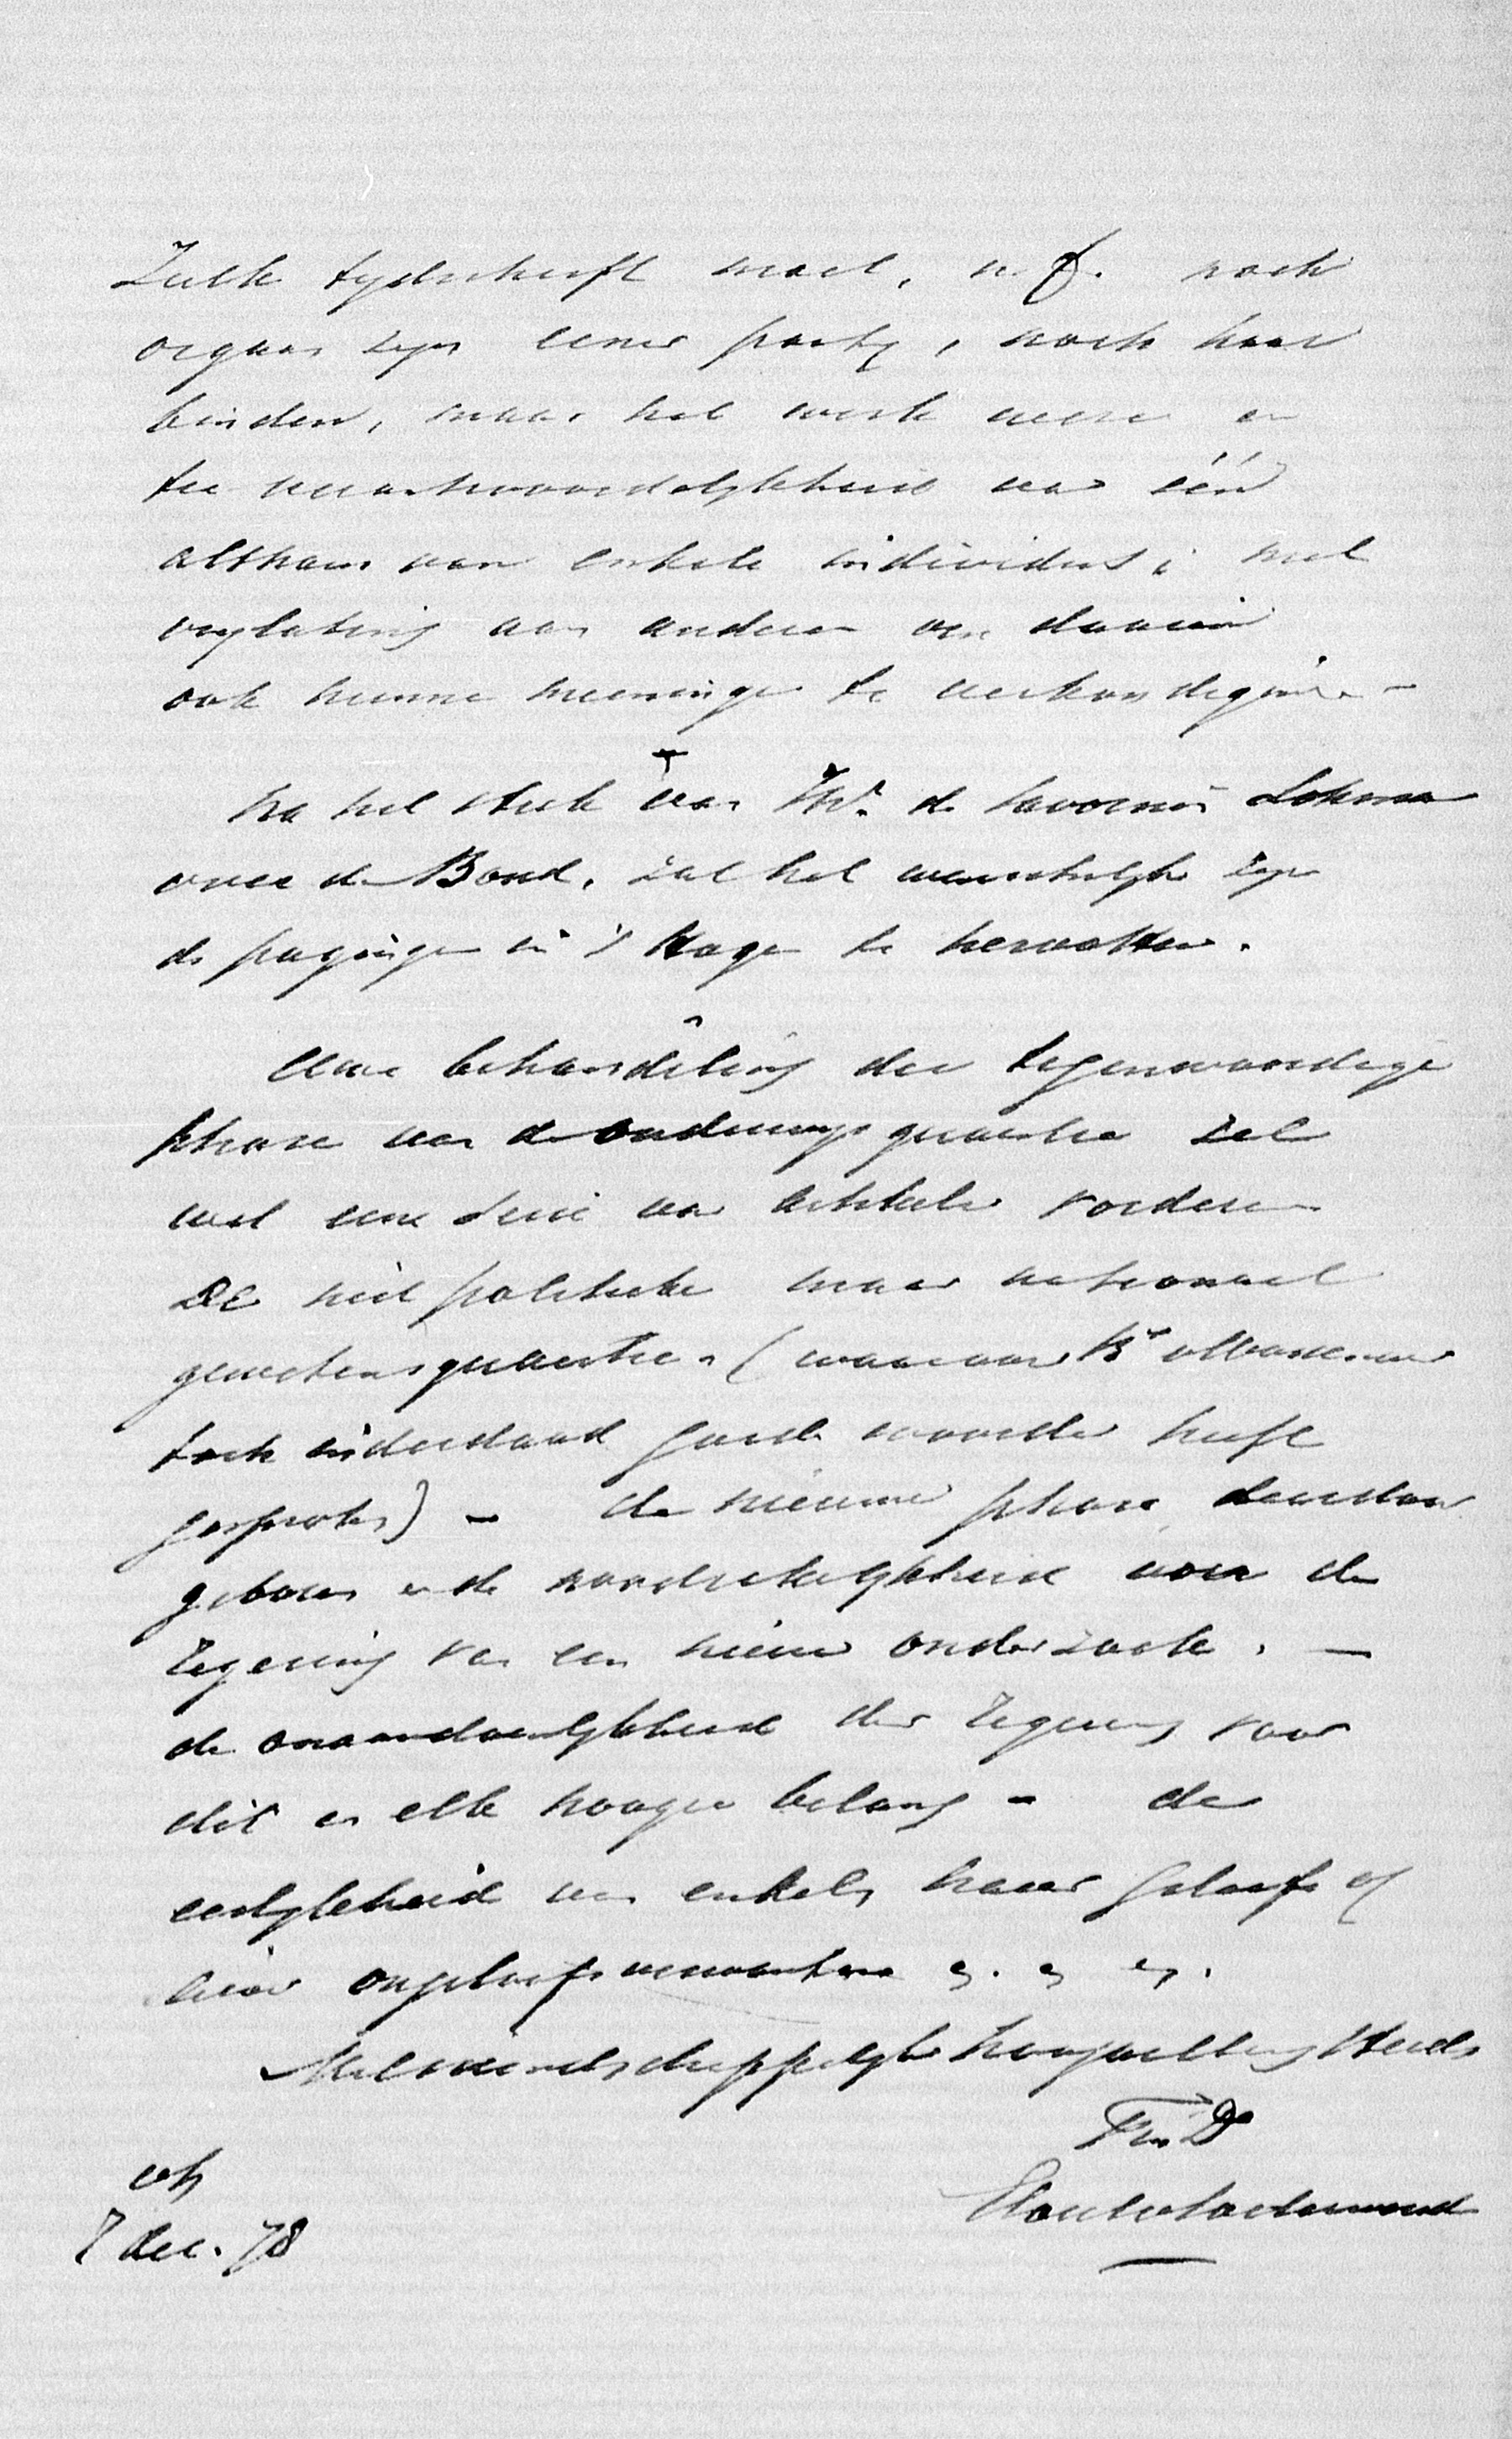 Zulk tydschrift moet, m.i. noch
orgaan zyn eener party, noch haar
binden, maar het werk wezen en
ter verantwoordelykheid van één
althans van enkele individus; met
vryлating aan anderen om daarin
ook hunne meeningen te verkondigen. –
Na het stuk van Jhr. de Savornin Lohman
over de Bond, zal het wenschelyk zyn
de pogingen in 's Hage te hervatten.
Eene behandeling der tegenwoordige
phase van de onderwys quaestie zal
wel eene serie van artikelen vorderen
De niet politieke maar nationaal
gewetensquaestie (waarvan
toch inderdaad goede woorden heeft
gesproken) – de nieuwe phase daardoor
geboren en de noodzakelykheid voor de
regering van een nieuw onderzoek. –
de onaandoenlykheid der regering voor
dit en elk hooger belang – de
eerlykheid van enkelen harer geloofs of
liever ongeloofsverwanten e. e. e.
Met vriendschappelyke hoogachting steeds
Elout v Soeterwoude
7 dec. 78